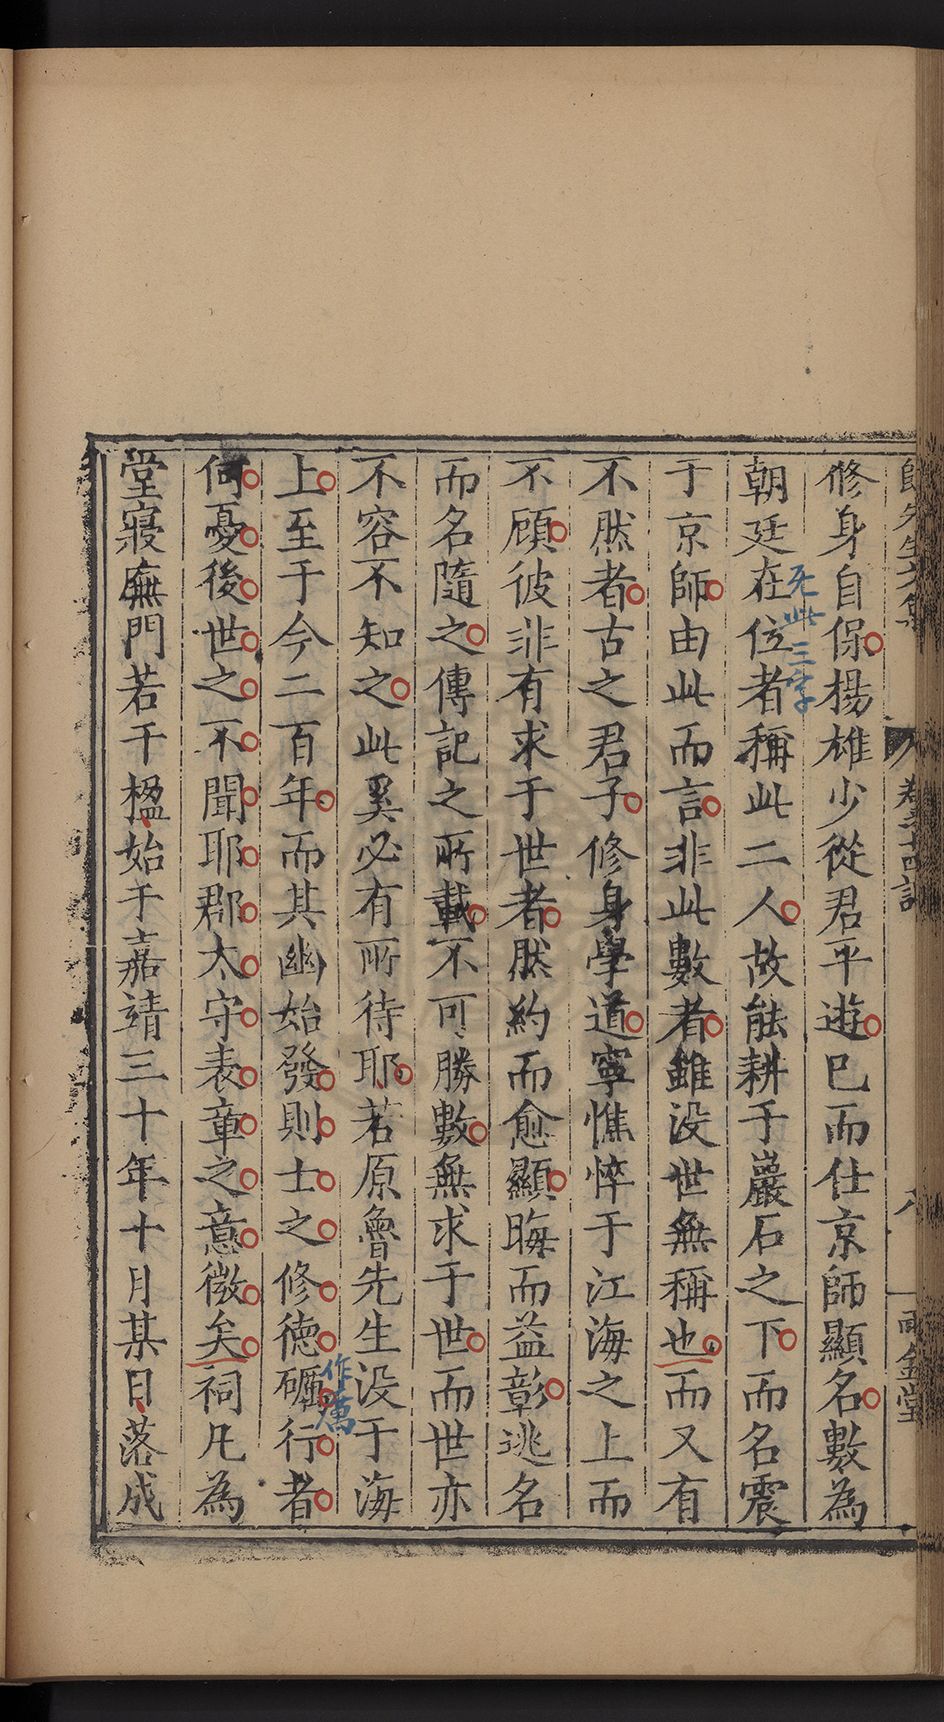 先生文集 卷二十四記 八 雨金堂
修身自保揚雄少從君平遊已而仕京師顯名數為
朝廷在位者稱此二人故能耕于巖石之下而名震
无此三字
于京師由此而言非此數者雖没世無稱也而又有
不然者古之君子修身學道寧憔悴于江海之上而
不顧彼非有求于世者然約而愈顯晦而益彰逃名
而名隨之傳記之所載不可勝數無求于世而世亦
不容不知之此奚必有所待耶若原魯先生没于海
上至于今二百年而其幽始發則士之修德礪行者
作厲
何憂後世之不聞耶郡太守表章之意微矣祠凡為
堂寢廡門若干楹始于嘉靖三十年十月某日落成